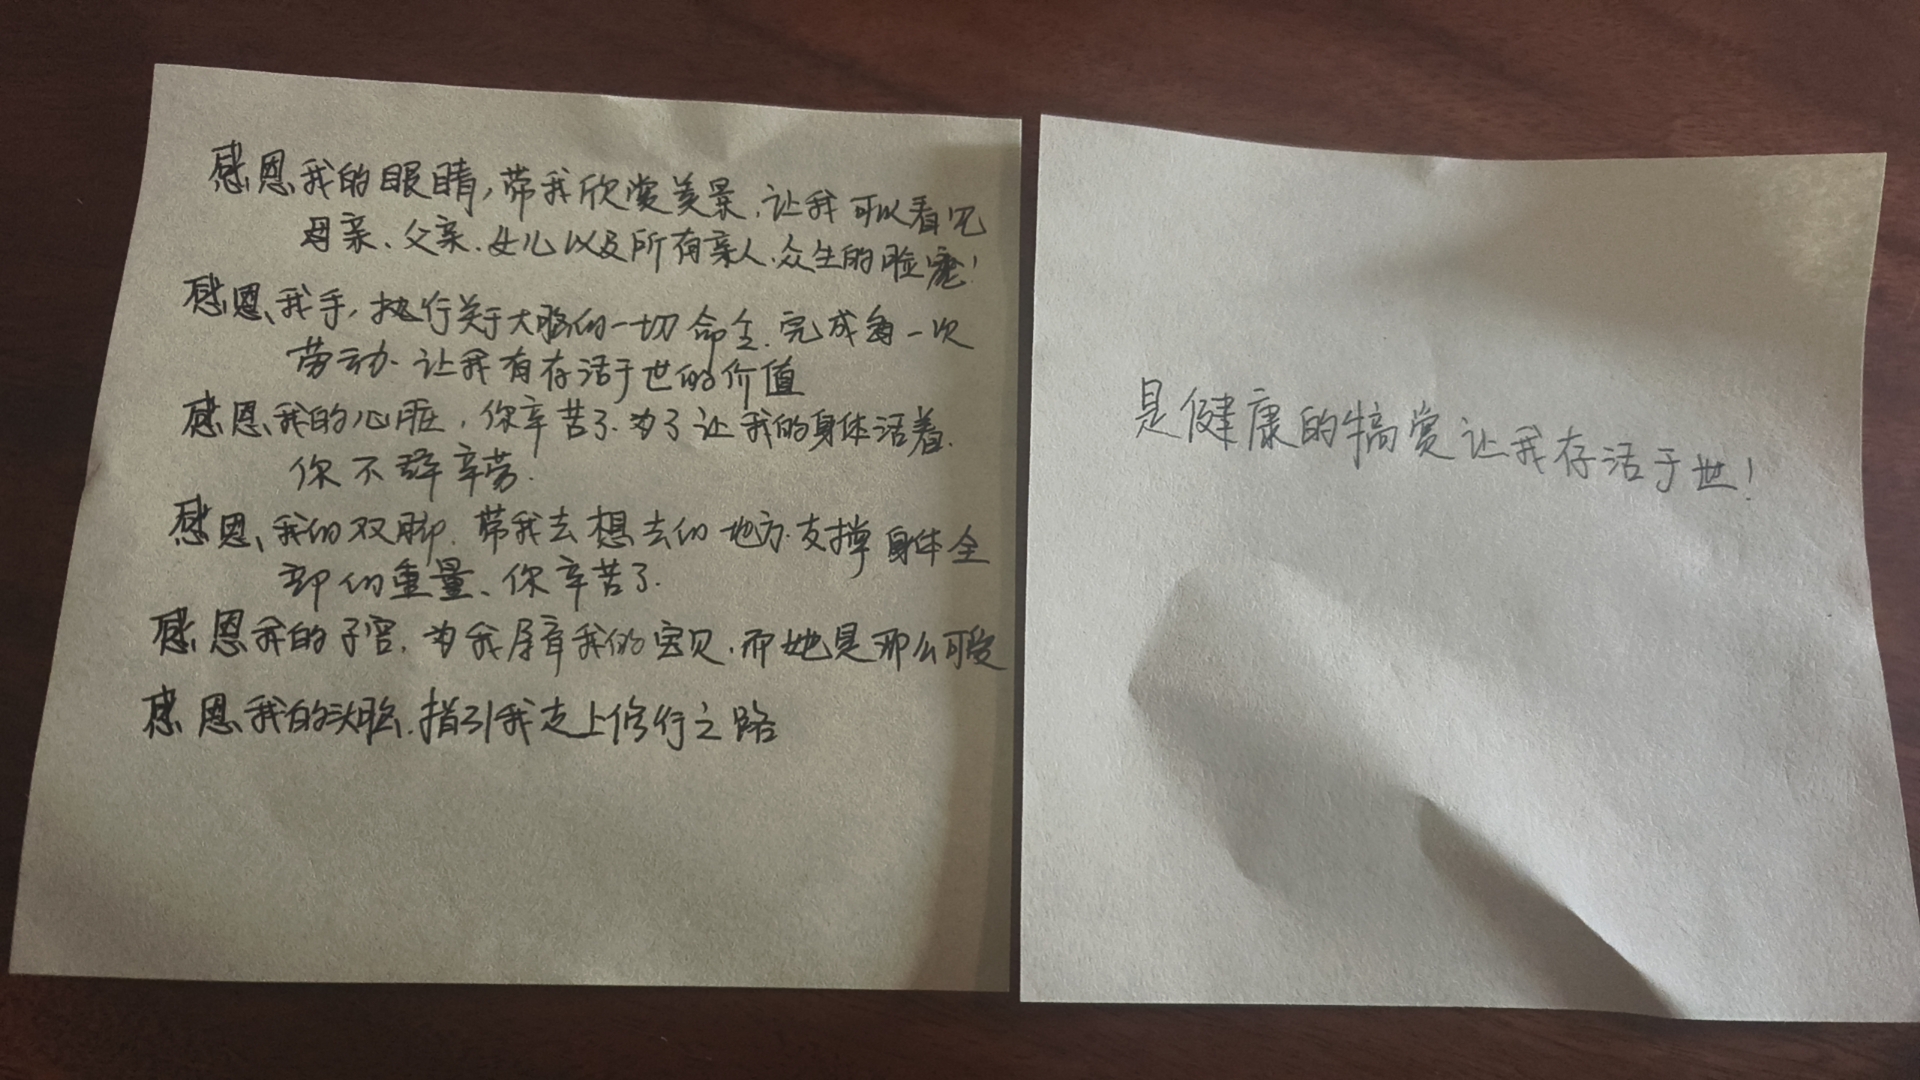 感恩我的眼睛,带我欣赏美景,让我可以看见
母亲、父亲、女儿以及所有亲人、众生的脸庞!
感恩我手,执行关于大脑的一切命令.完成每一次
劳动.让我有存活于世的价值
感恩我的心脏,你辛苦了.为了让我的身体活着.
你不辞辛劳.
感恩我的双脚.带我去想去的地方.支撑身体全
部的重量、你辛苦了.
感恩我的子宫.为我孕育我的宝贝.而她是那么可爱
感恩我的头脑.指引我走上修行之路
是健康的犒赏让我存活于世!